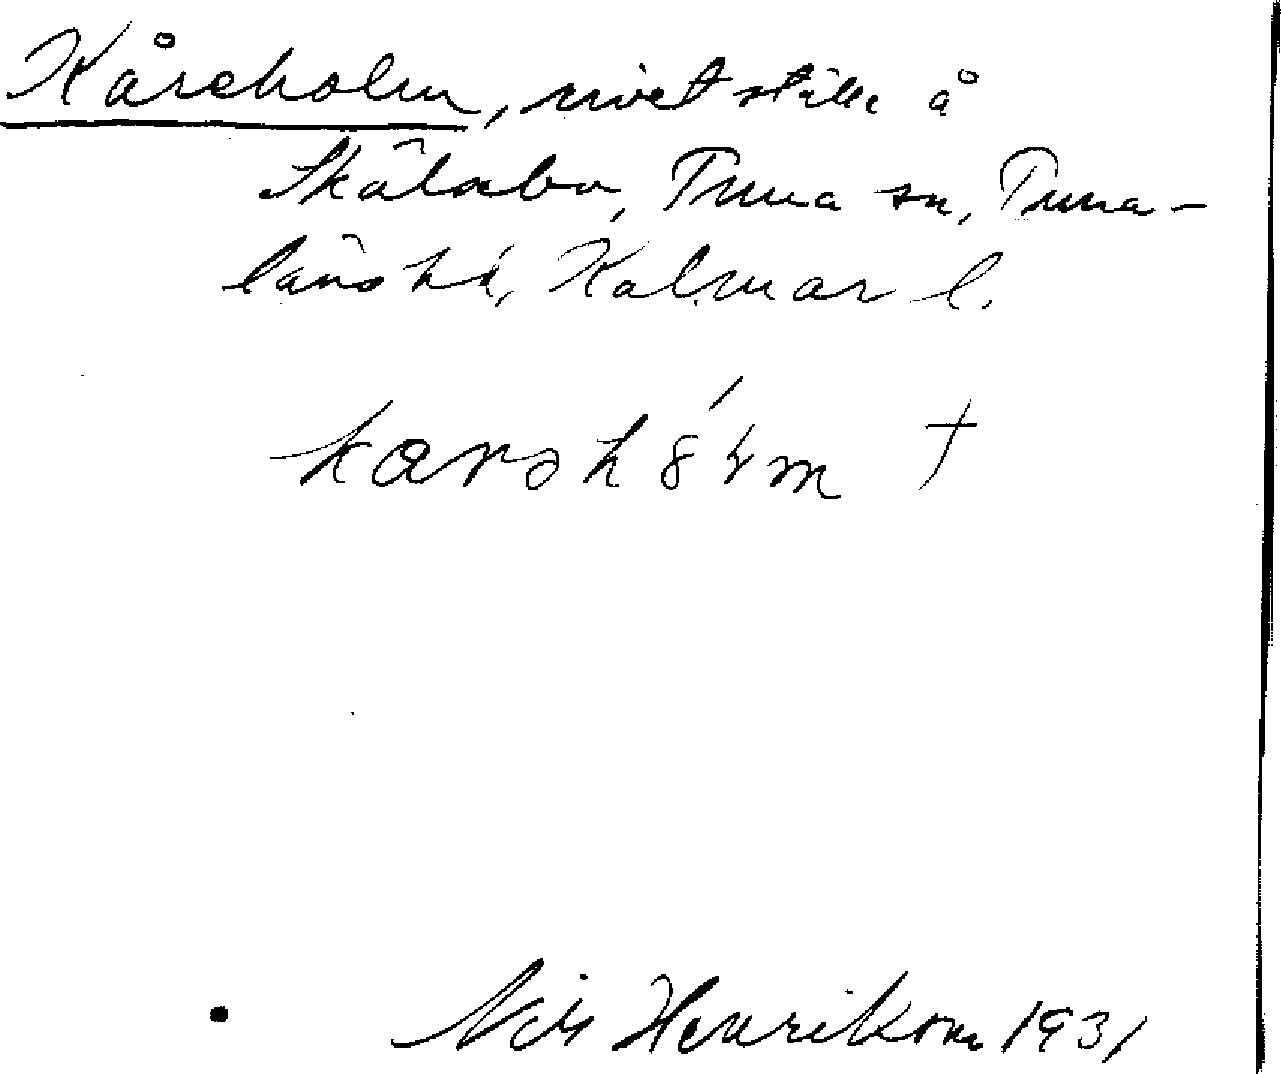 Kåreholm, rivet ställe å
Skälsbo, Tuna sn, Tuna-
läns hd, Kalmar l.
Nils Henrikson 1931